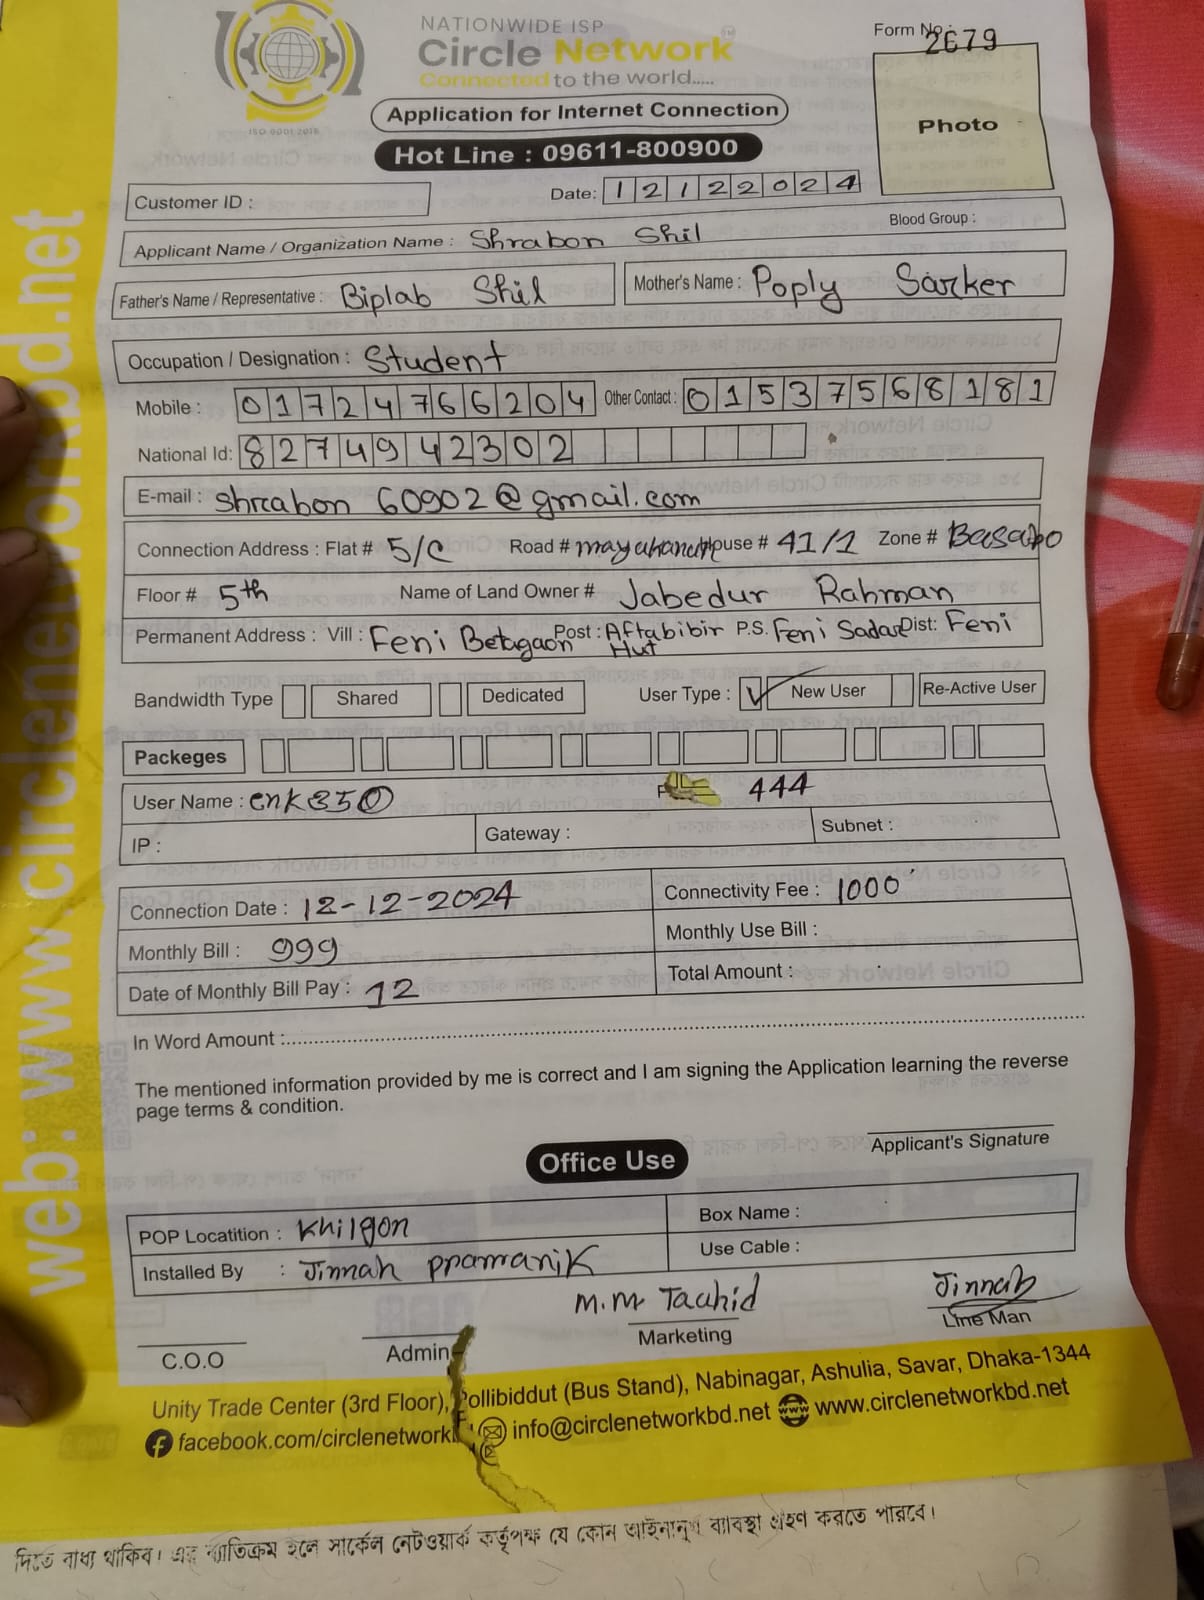 NATIONWIDE ISP
Circle Network
Connected to the world.....
ISO 9001:2015
Form No: 2679
Photo
Application for Internet Connection
Hot Line : 09611-800900
Customer ID :
Date: 12122024
Blood Group :
Applicant Name / Organization Name : Shrabon Shil
Father's Name / Representative : Biplab Shil Mother's Name : Poply Sarker
Occupation / Designation : Student
Mobile : 01724766204 Other Contact : 01537568181
National Id: 8274942302
E-mail : shrabon 60902@gmail.com
Connection Address : Flat # 5/C Road # House # 41/1 Zone # Basabo
Floor # 5th Name of Land Owner # Jabedur Rahman
Permanent Address : Vill : Feni Betagaon Post : Aftabibir Hut P.S. Feni Sadar Dist: Feni
Bandwidth Type Shared Dedicated User Type : ✓ New User Re-Active User
Packeges
User Name : cnk350 444
IP : Gateway : Subnet :
Connection Date : 12-12-2024 Connectivity Fee : 1000
Monthly Bill : 999 Monthly Use Bill :
Date of Monthly Bill Pay : 12 Total Amount :
In Word Amount :
The mentioned information provided by me is correct and I am signing the Application learning the reverse
page terms & condition.
Applicant's Signature
Office Use
POP Locatition : Khilgon Box Name :
Installed By : Jinnah pramanik Use Cable :
M.M Tauhid Jinnah
C.O.O Admin Marketing Line Man
Unity Trade Center (3rd Floor), Pollibiddut (Bus Stand), Nabinagar, Ashulia, Savar, Dhaka-1344
facebook.com/circlenetwork info@circlenetworkbd.net www.circlenetworkbd.net
web: www.circlenetworkbd.net
দিতে বাধ্য থাকিব। এর ব্যতিক্রম হলে সার্কেল নেটওয়ার্ক কর্তৃপক্ষ যে কোন আইনানুগ ব্যবস্থা গ্রহণ করতে পারবে।